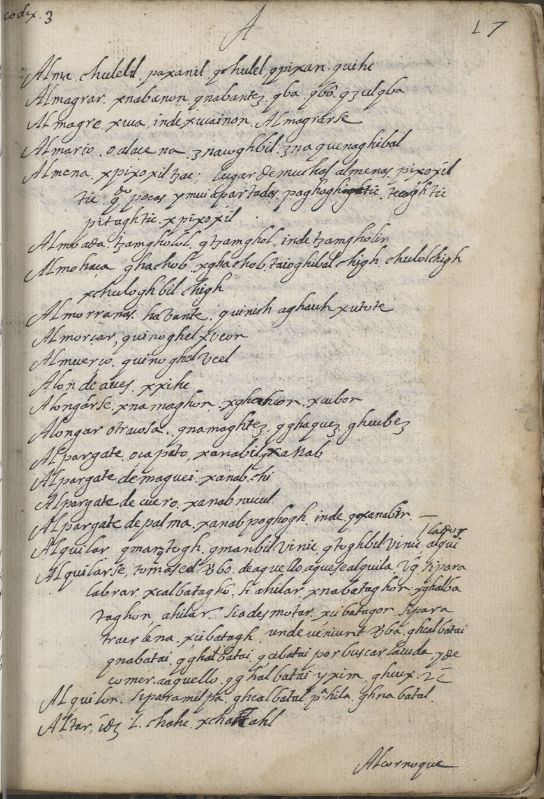 codex. 3
A
17
Alma, chulelil, paxanil, qchulel qpixan, quihi
Almagrar, xnabanon qnabantez, qba
Almagre, xua, inde xucainon Almagrarse
Almario, o alacena, znauoghbil, znaquenaghibal
Almena, xpixoxil tzac. lugar de muchas almenas, pixoxil
tic, pocas y mui apartadas, teaghtic
pitaghtic, xpixoxil
Almoada, tzamghol, inde tzamgholin
Almohaça, ghachob, xghachob taioghibal chigh, chulolchigh
xchuloghbil chigh
Almorranas, habante, quinich aghauh xutote
Almorçar, quinoghel
Almuerço, quinoghel veel
Alon de aues, xxihc
Alongarse, xnamaghon, xghahon, xcubon
Alongar otra cosa, qnamaghtez, qghaquez, ghcubez
Alpargate, o çapato, xanabil, xanab
Alpargate de maguei, xanab chi
Alpargate de cuero, xanab nucul
Alpargate de palma, xanab poghogh, inde qxanabin
Alquilar, qmantogh, qmanbil vinic, qtoghbil vinic
Alquilarse, de aquello a que se alquila, si para
labrar, xcalbatagho, si a hilar, xnabataghon, xghalba
taghon, a hilar, si a desmotar, xcibatagon, si para
traer leña, xcibatagh, unde veniunt, ghcalbatai
qnabatai, qghalbatai, qcibatai por buscar la vida y de
comer a aquello, qghalbatai yxim, gheux
Alquilon, si para milpa, ghcalbatal, hila, ghnabatal
Altar, chahc
Alcornoque